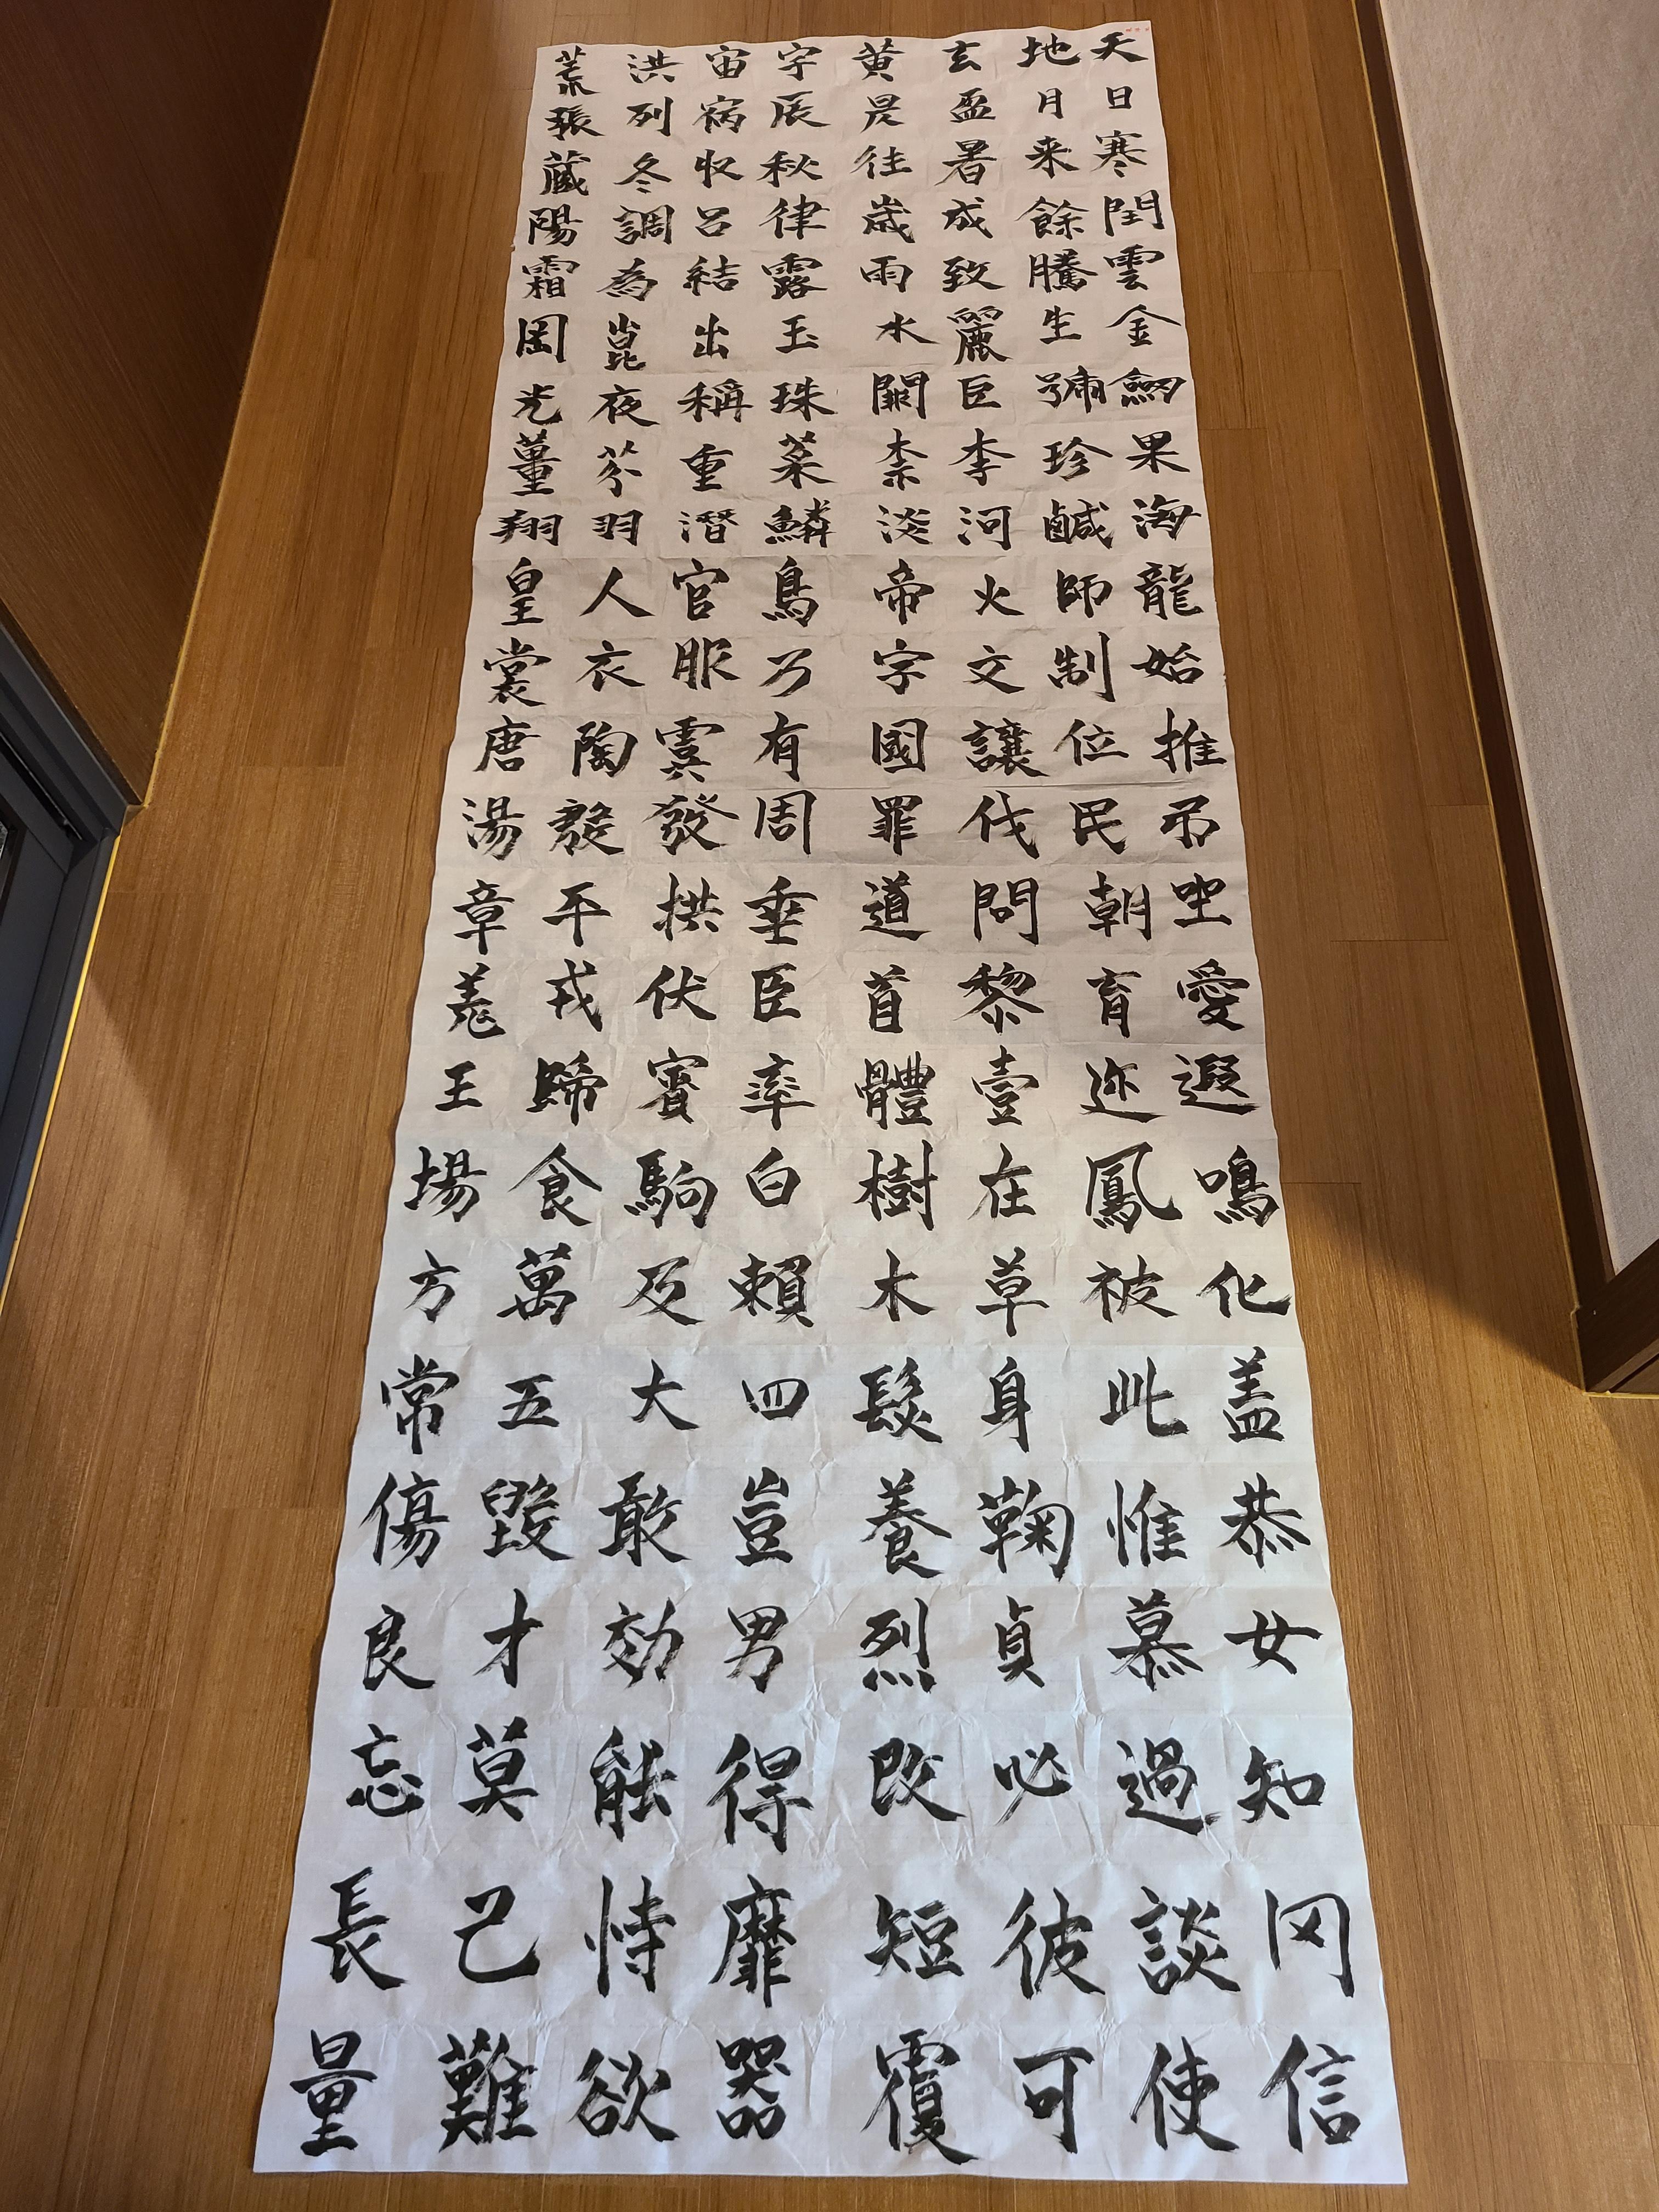 天地玄黄宇宙洪荒
日月盈昃辰宿列張
寒来暑往秋収冬蔵
閏餘成歳律呂調陽
雲騰致雨露結為霜
金生麗水玉出崑岡
劒號巨闕珠稱夜光
果珍李柰菜重芥薑
海鹹河淡鱗潛羽翔
龍師火帝鳥官人皇
始制文字乃服衣裳
推位讓國有虞陶唐
弔民伐罪周發殷湯
坐朝問道垂拱平章
愛育黎首臣伏戎羌
遐迩壹體率賓歸王
鳴鳳在樹白駒食場
化被草木賴及萬方
盖此身髮四大五常
恭惟鞠養豈敢毀傷
女慕貞烈男効才良
知過必改得能莫忘
罔談彼短靡恃己長
信使可覆器欲難量